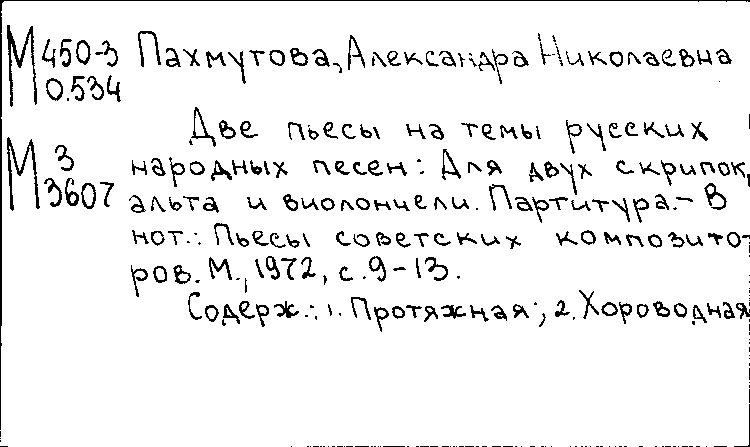 М 450-3 Пахмутова, Александра Николаевна
0.534
Две пьесы на темы русских
М 3 народных песен: Для двух скрипок,
3607 альта и виолончели. Партитура.- В
нот.: Пьесы советских композито-
ров. М., 1972, с.9-13.
Содерж.: 1. Протяжная; 2. Хороводная